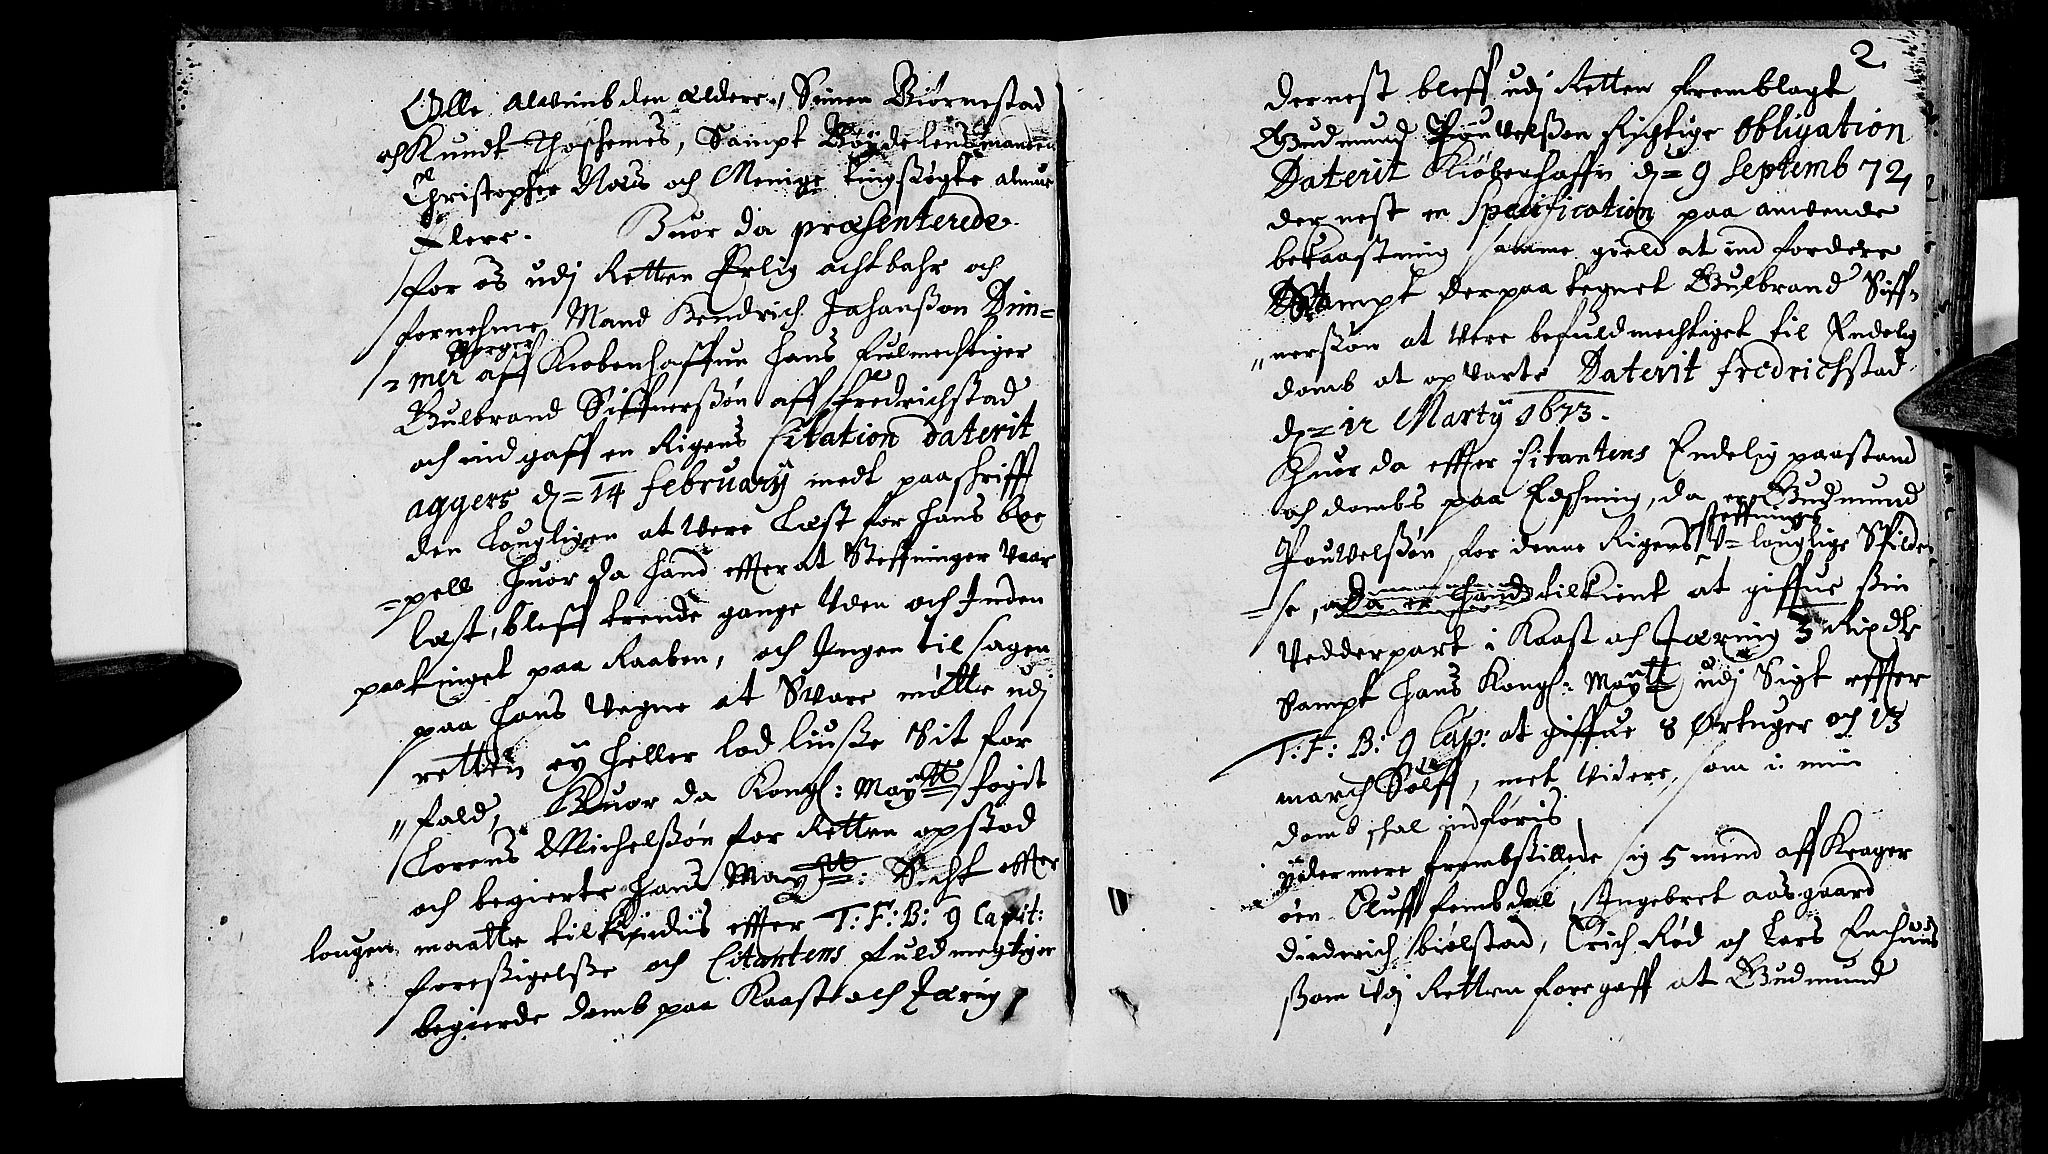 Olle Alwimb den Eldere, Simen Biørnestad
och Knudt Thoschemes, Sampt Bøyde lens manden
Christopher Roes och Menige tingssøgte almue
flere. Huor da præsenterede
for os udj Retten Erlig achtbahr och
fornehme Mand Hendrich Johansøn Dim=
=mer Borger aff Kiøbenhaffun hans fulmechtiger
Gulbrand Siffuerssøn aff Fredrichstad
och ind gaff en Rigens Citation daterit
aggers d= 14 february medt paaskrifft
den lougligen at Vere læst for hans boe
=pell huor da hand effter at Steffninger Vaar
læst, bleff trende gange Uden och Inden
paa tinget paa Raaben, och Ingen til sagen
paa hans Vegne at Svare møtte udj
retten ey heller lod liusse Sit for
"fald, Huor da Kongl: Maytt fogit
Lorens Michelssøn for Retten opstod
och begierte hans Maytt: Sicht effter
lougen maatte tilkiendis effter T: F: B: 9 Capit:
foresigelsse och Citantens fuldmegtige
begierde domb paa Kaast och Tæring
2
dernest bleff udj Retten fremblagt
Gudmund Pouvelssøn Rigtige Obligation
Daterit Kiøbenhaffn d= 9 Septemb 72,
der nest en Specification paa anvende
bekaastning samme gield at ind fordere
Sampt derpaa tegnet Gulbrand Siff=
"uerssøn at Vere befuldmechtiget til Endelig
domb at opvarte Daterit fredrichstad
d= 12 Martij 1673.
Huor da effter Citantens Endelig paastand
och dombs paa Eschning, da er Gudmund
Pouvelssøn for denne Rigens Steffnings U=louglige Spilde
=se, Da er hand tilkient at giffue sin
Vedderpart i Kaast och Tæring 3 Rixdlr
Sampt hans Kongl: Maytt udj Sigt effter
T: F: B: 9 Cap: at giffue 8 Ørtuger och 13
march Sølff, met Videre, som i min
domb schal indføris
ydermere frembstillede sig 5 mend aff Krager
øen Oluff fembdal, Ingebret aasgaard
Diederich biølstad, Erich Rød och Lars Enhuus
som Udj Retten foregaff at Gudmund